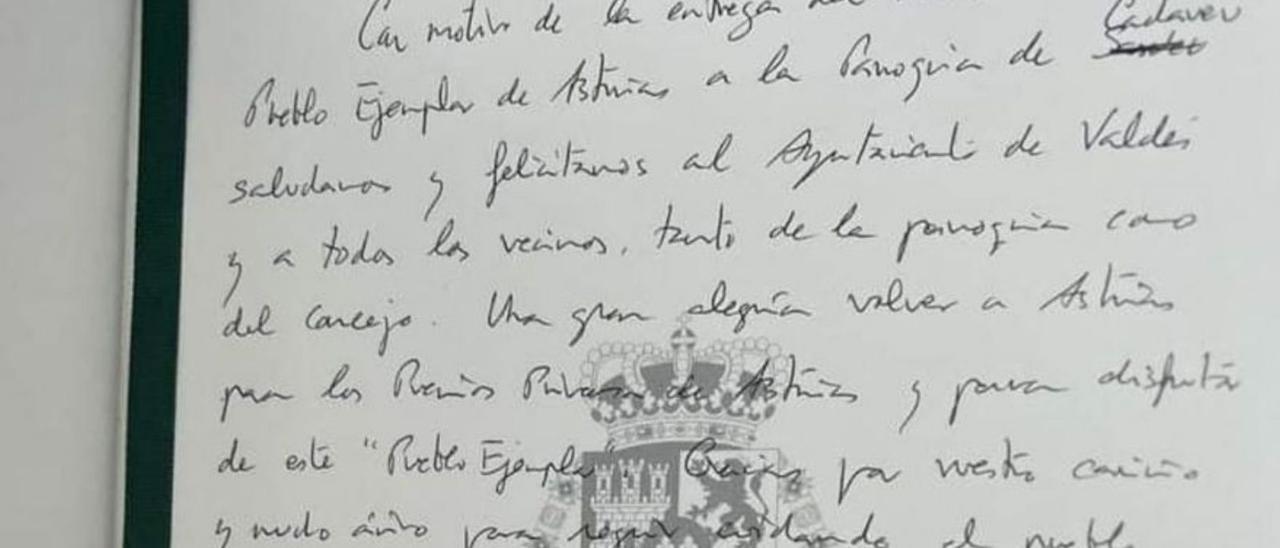 Con motivo de la entrega del
Pueblo Ejemplar de Asturias a la Parroquia de Cadavedo
saludamos y felicitamos al Ayuntamiento de Valdés
y a todos los vecinos, tanto de la parroquia como
del concejo. Una gran alegría volver a Asturias
para los Premios Princesa de Asturias y para disfrutar
de este "Pueblo Ejemplar". Gracias por vuestro cariño
y mucho ánimo para seguir cuidando el pueblo